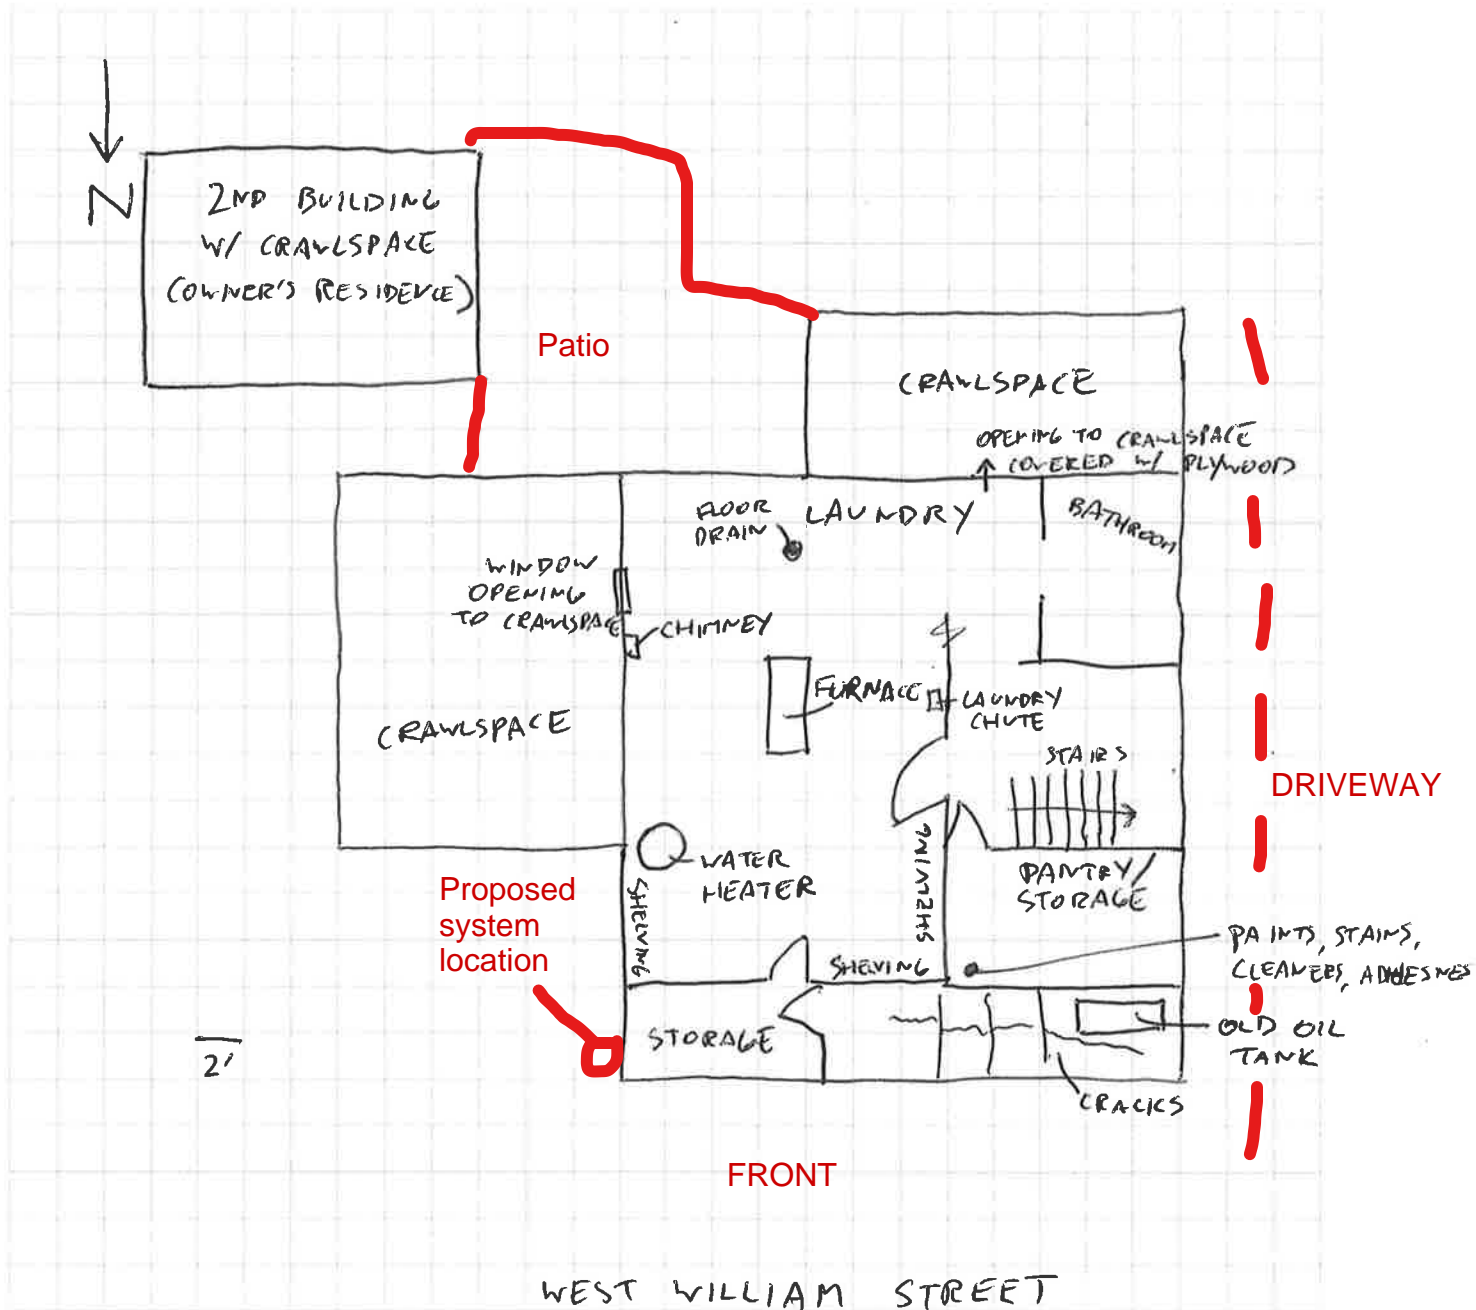 N
2ND BUILDING
W/ CRAWLSPACE
(OWNER'S RESIDENCE)
Patio
CRAWLSPACE
OPENING TO CRAWLSPACE
COVERED W/ PLYWOOD
FLOOR
DRAIN
LAUNDRY
BATHROOM
WINDOW
OPENING
TO CRAWLSPACE
CHIMNEY
FURNACE
LAUNDRY
CHUTE
CRAWLSPACE
STAIRS
DRIVEWAY
WATER
HEATER
SHELVING
SHELVING
PANTRY/
STORAGE
Proposed
system
location
SHELVING
PAINTS, STAINS,
CLEANERS, ADHESIVES
STORAGE
OLD OIL
TANK
2'
CRACKS
FRONT
WEST WILLIAM STREET